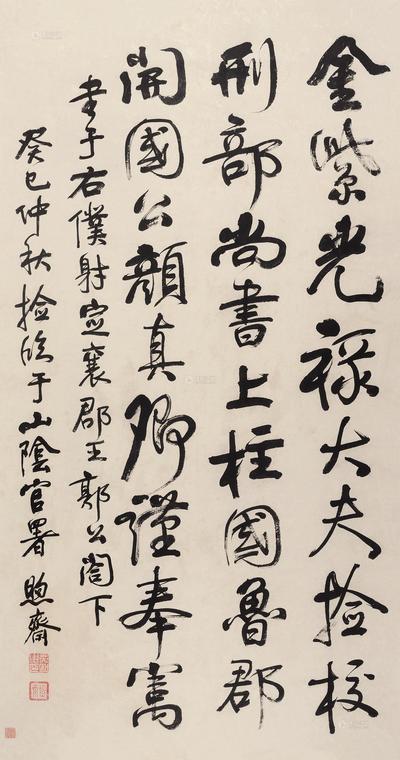 金紫光祿大夫撿校
刑部尚書上柱國魯郡
開國公顏真卿謹奉寓
書于右僕射定襄郡王郭公閤下
癸巳仲秋撿臨于山陰官署 煦齋